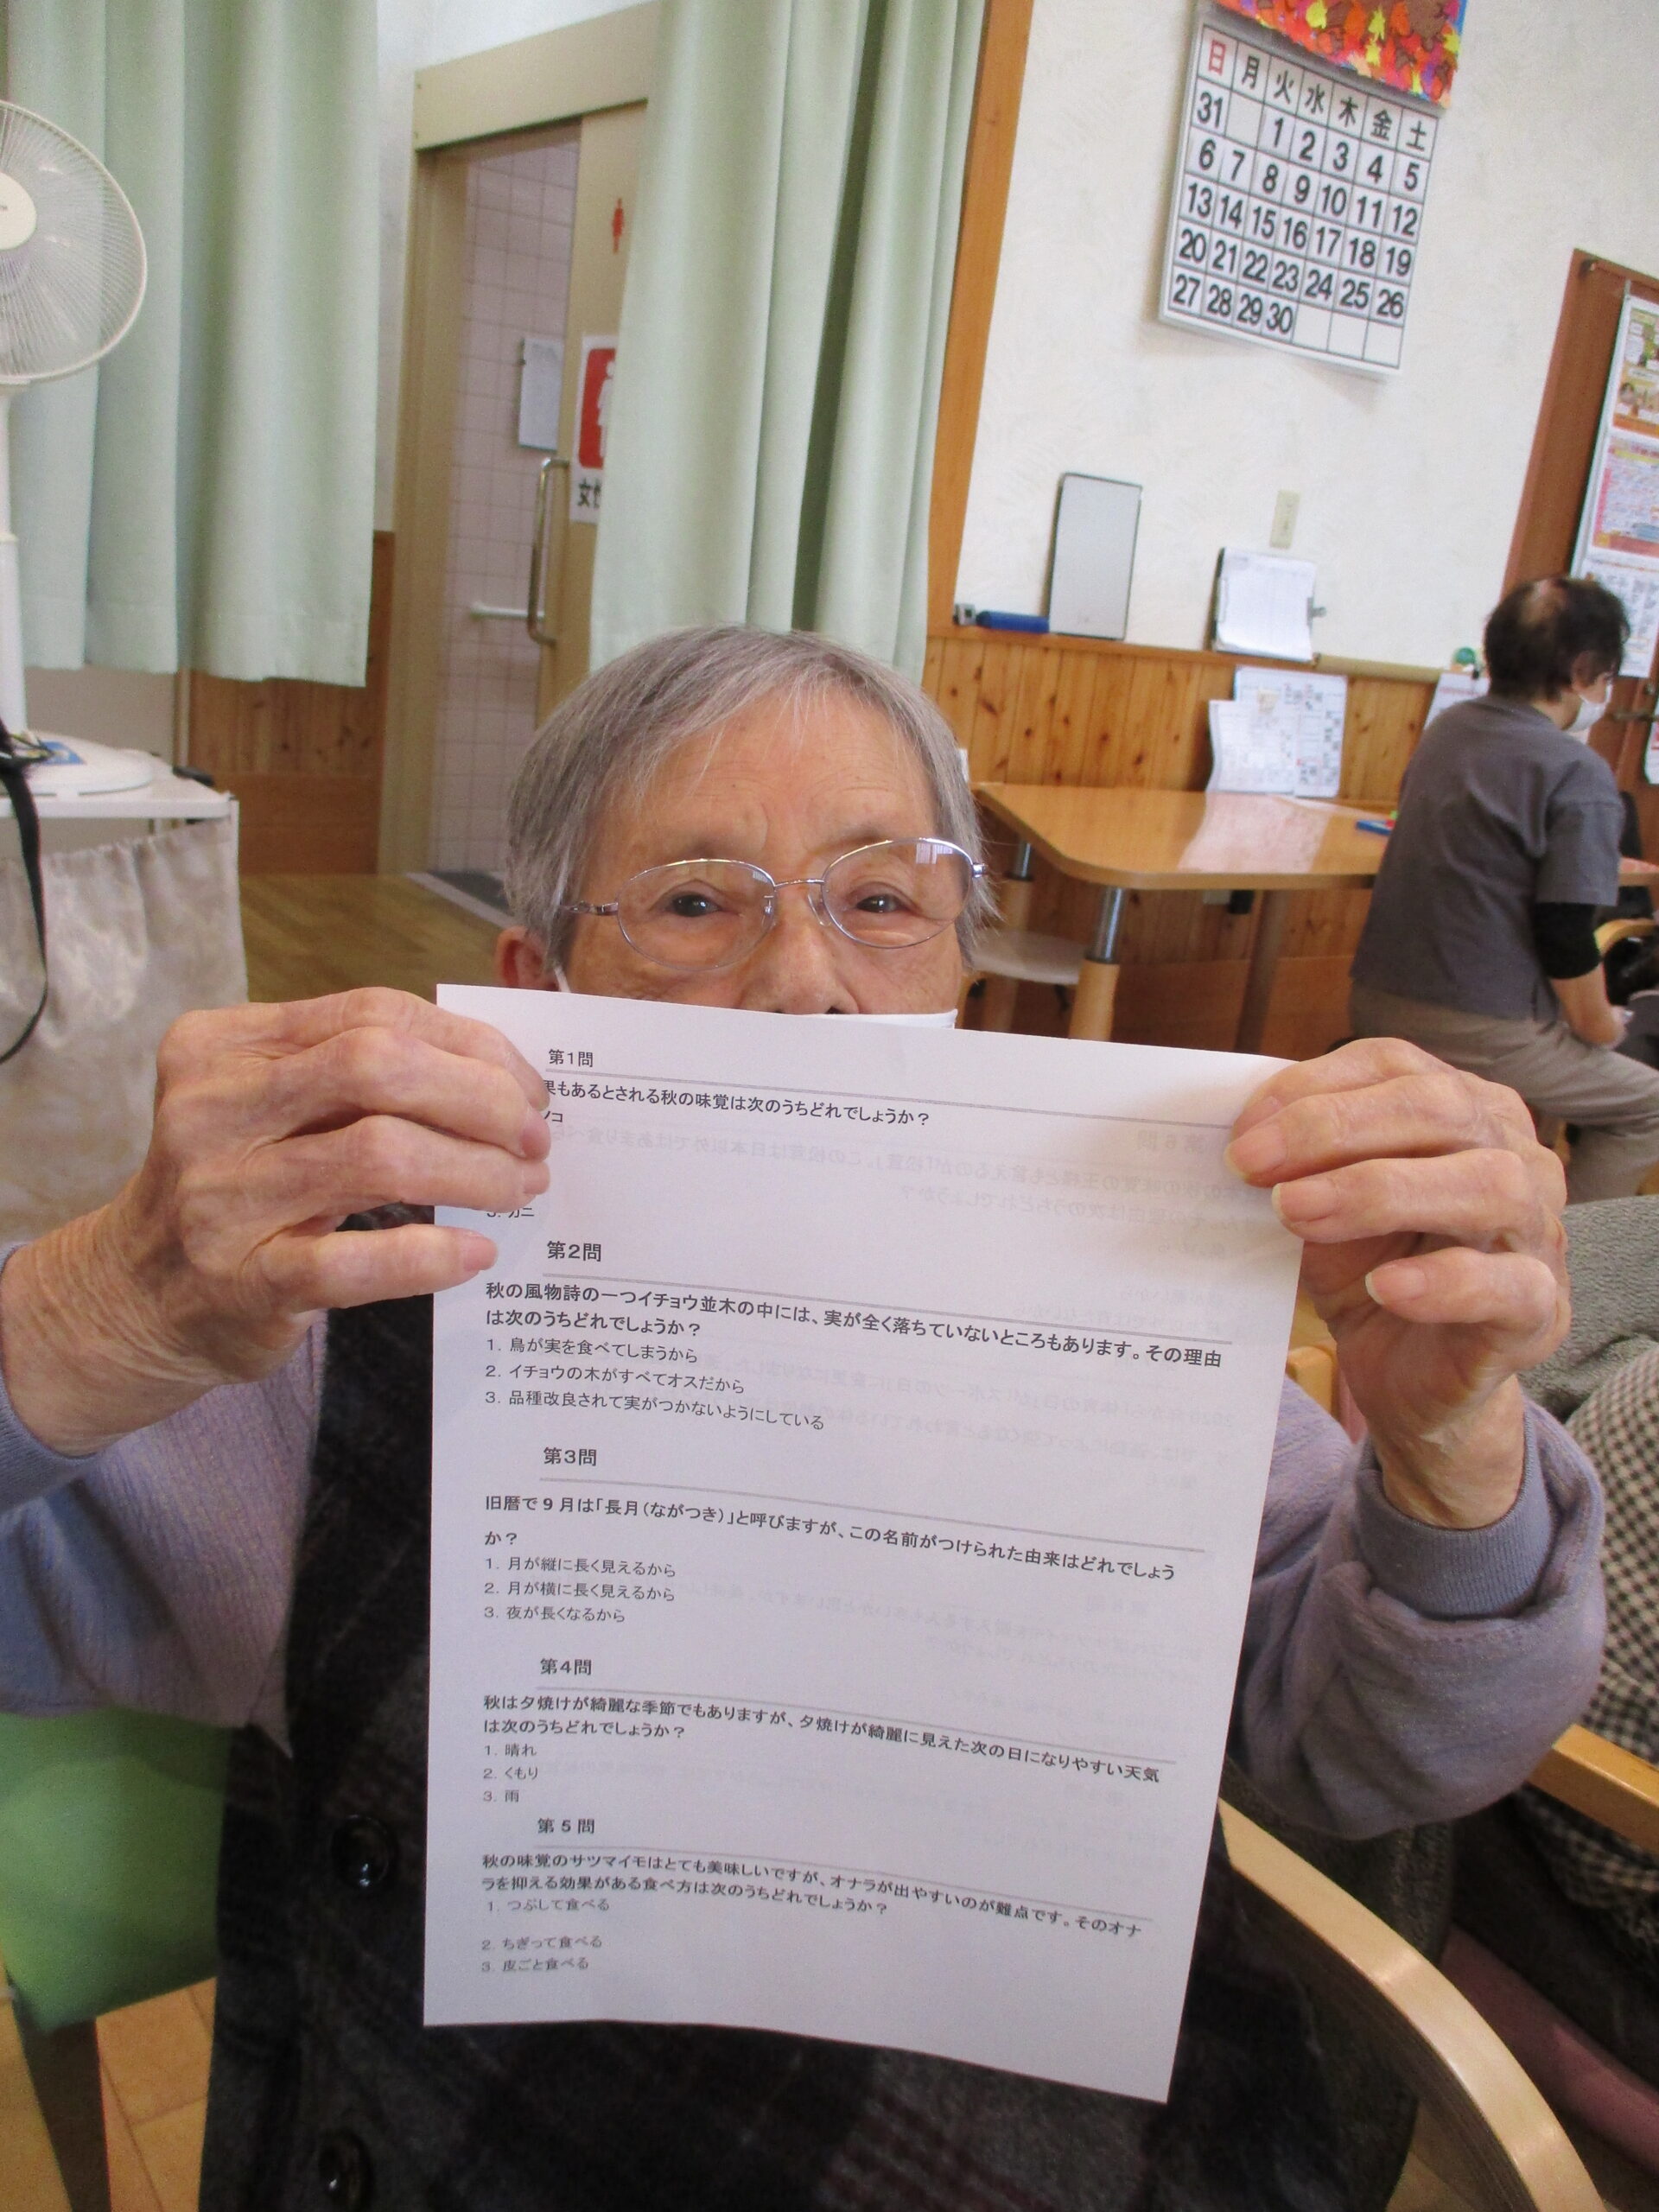 日 月 火 水 木 金 土
31 1 2 3 4 5
6 7 8 9 10 11 12
13 14 15 16 17 18 19
20 21 22 23 24 25 26
27 28 29 30
女性
第1問
果もあるとされる秋の味覚は次のうちどれでしょうか？
ノコ
3. カニ
第2問
秋の風物詩の一つイチョウ並木の中には、実が全く落ちていないところもあります。その理由
は次のうちどれでしょうか？
1. 鳥が実を食べてしまうから
2. イチョウの木がすべてオスだから
3. 品種改良されて実がつかないようにしている
第3問
旧暦で9月は「長月（ながつき）」と呼びますが、この名前がつけられた由来はどれでしょう
か？
1. 月が縦に長く見えるから
2. 月が横に長く見えるから
3. 夜が長くなるから
第4問
秋は夕焼けが綺麗な季節でもありますが、夕焼けが綺麗に見えた次の日になりやすい天気
は次のうちどれでしょうか？
1. 晴れ
2. くもり
3. 雨
第5問
秋の味覚のサツマイモはとても美味しいですが、オナラが出やすいのが難点です。そのオナ
ラを抑える効果がある食べ方は次のうちどれでしょうか？
1. つぶして食べる
2. ちぎって食べる
3. 皮ごと食べる